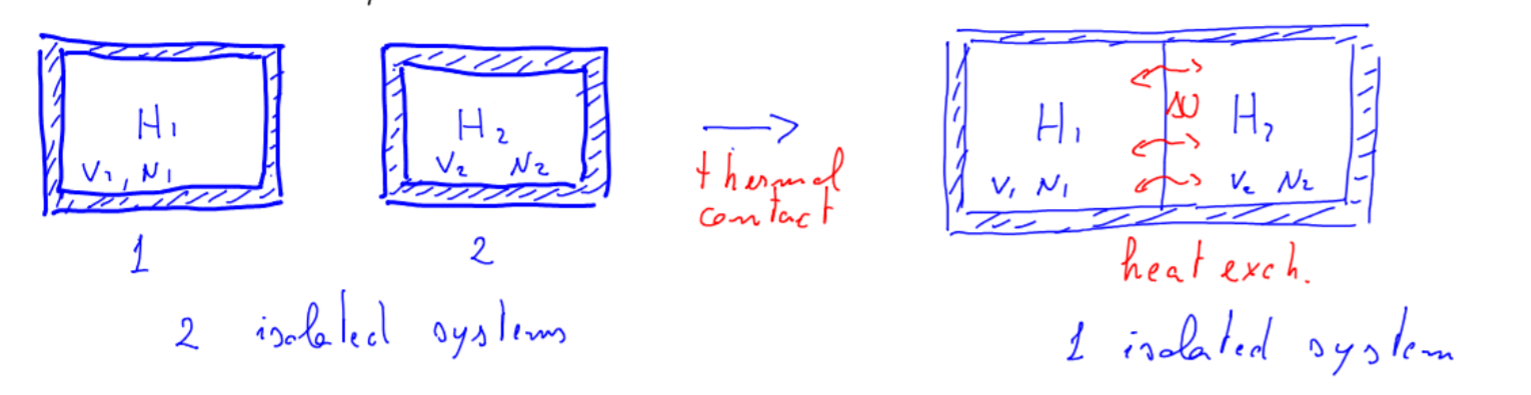 H₁
V₁, N₁
1
H₂
V₂ N₂
2
2 isolated systems
thermal
contact
H₁
ΔU
H₂
V₁ N₁
V₂ N₂
heat exch.
1 isolated system